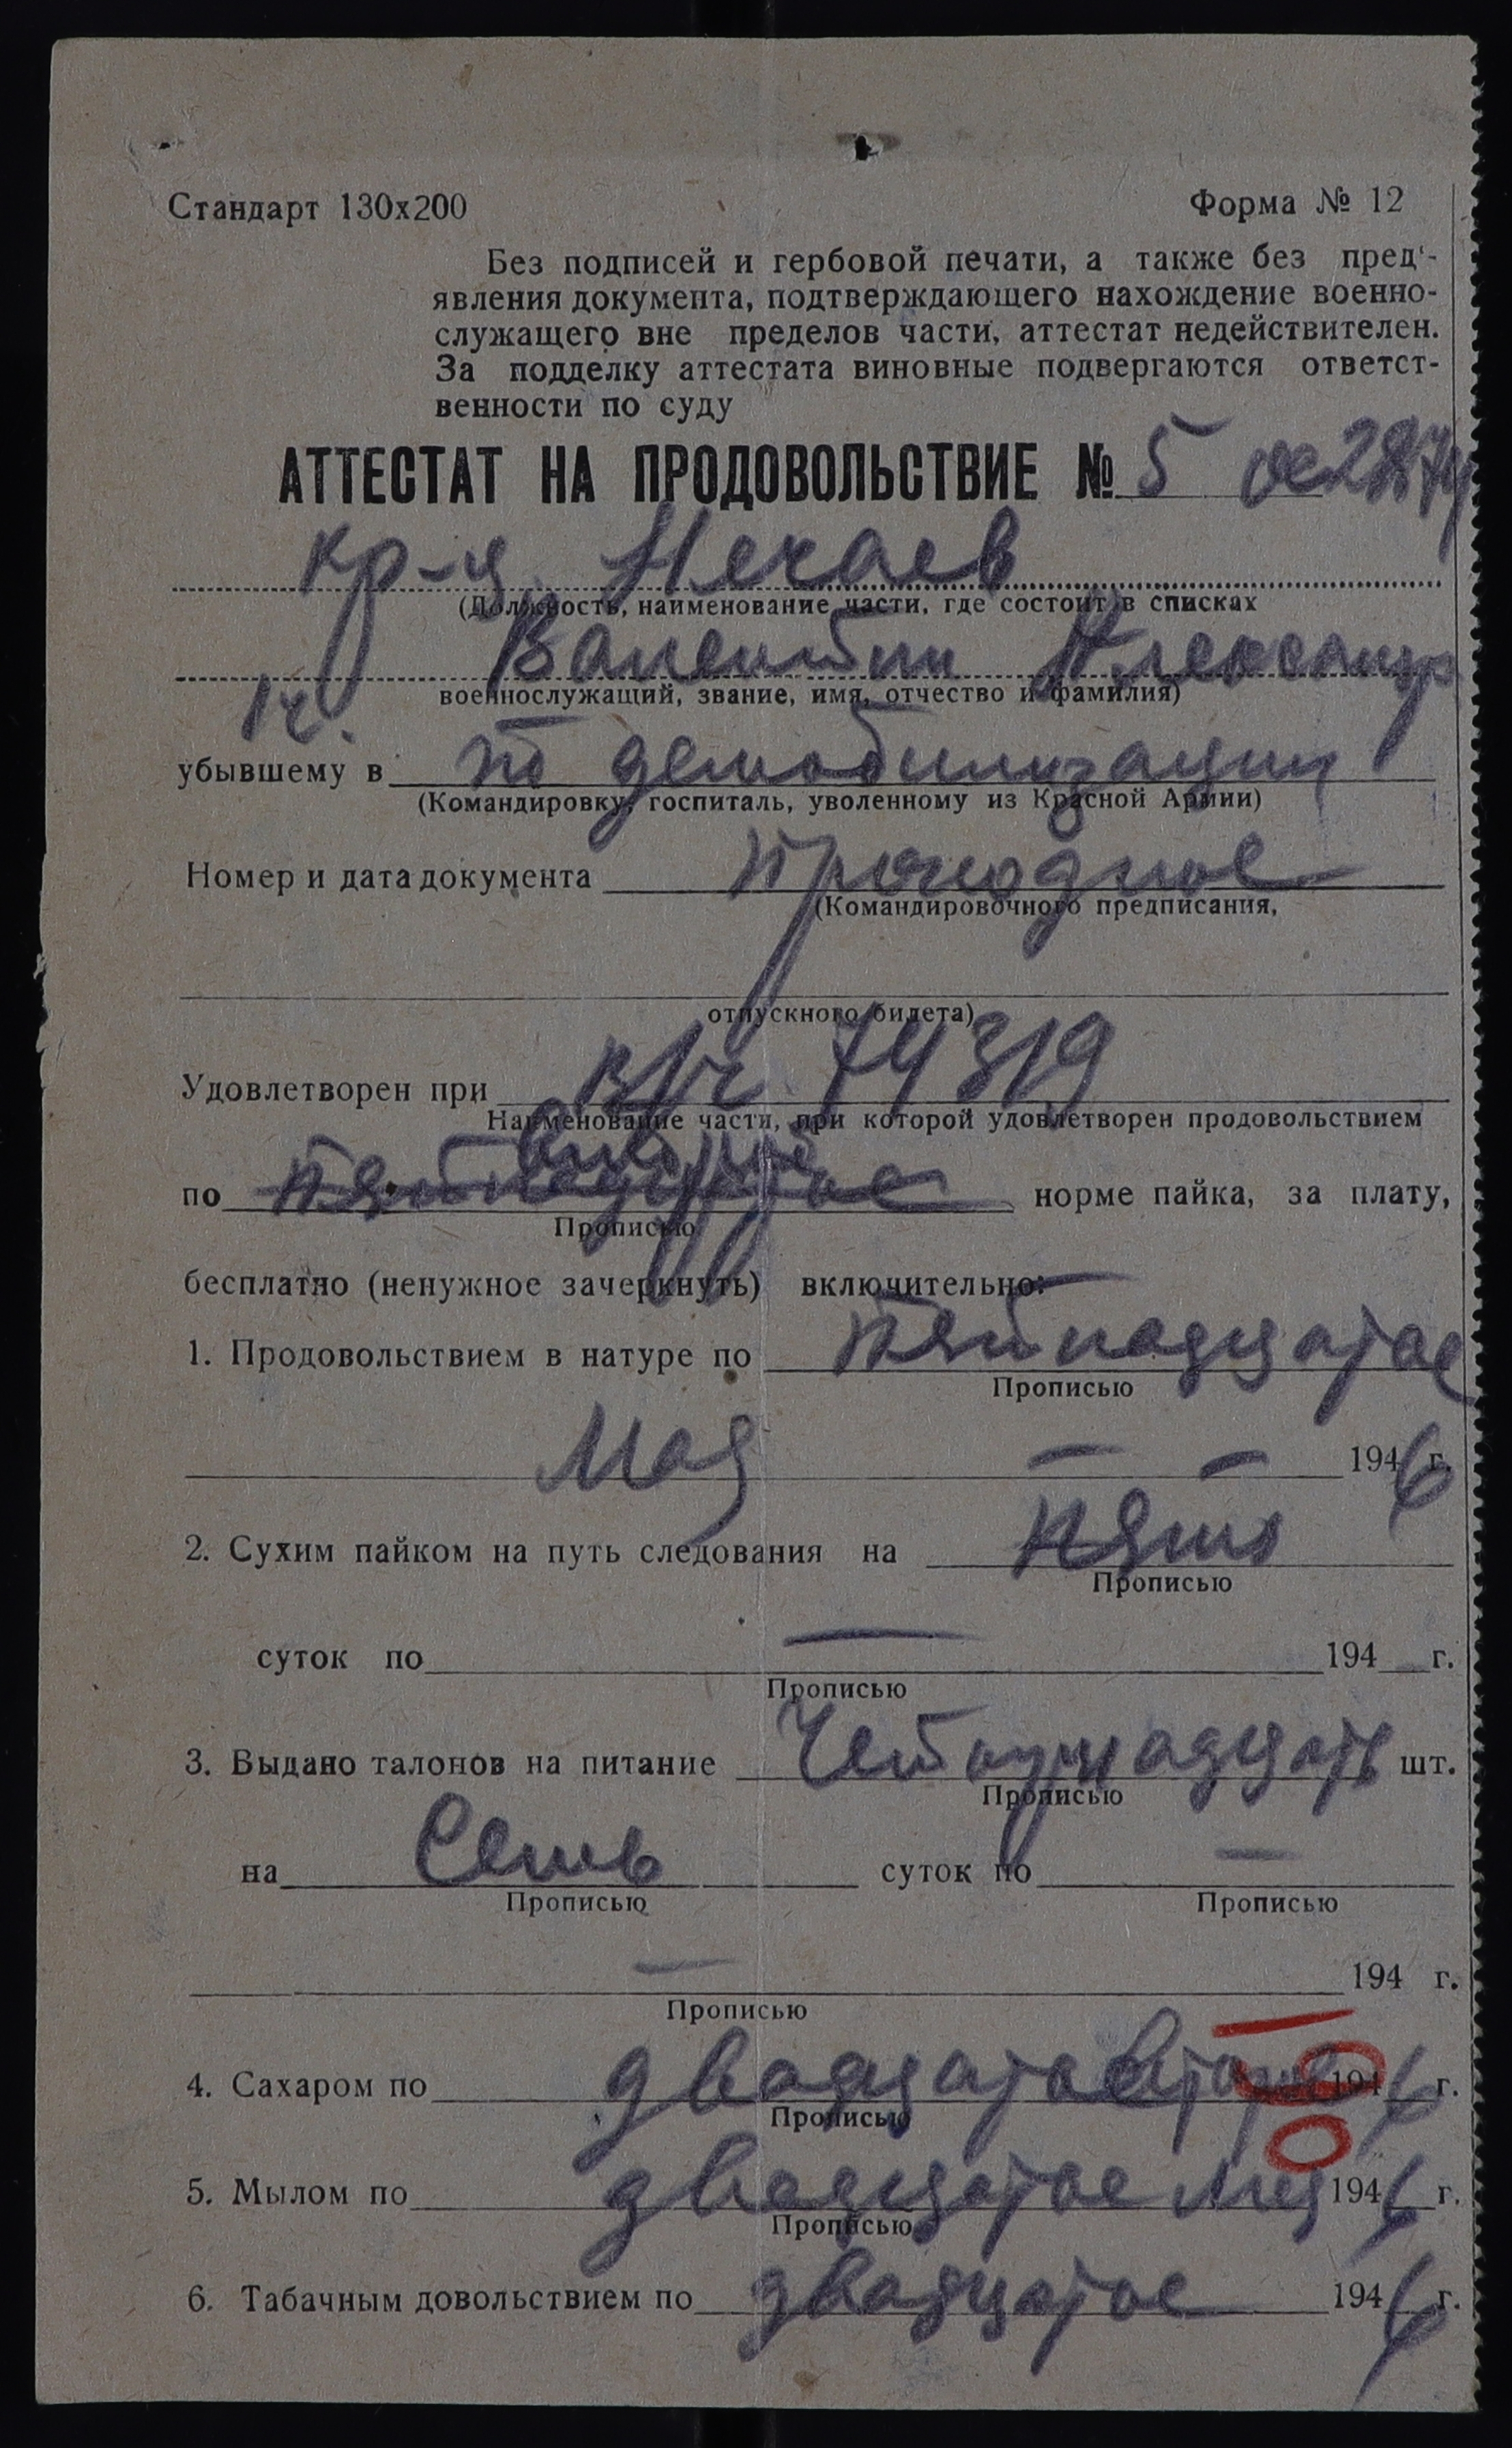 Стандарт 130х200 Форма № 12
Без подписей и гербовой печати, а также без пред'-
явления документа, подтверждающего нахождение военно-
служащего вне пределов части, аттестат недействителен.
За подделку аттестата виновные подвергаются ответст-
венности по суду
АТТЕСТАТ НА ПРОДОВОЛЬСТВИЕ № 5
кр-ц Нечаев
(Должность, наименование части, где состоит в списках
Валентин Александр
военнослужащий, звание, имя, отчество и фамилия)
убывшему в по демобилизации
(Командировку, госпиталь, уволенному из Красной Армии)
Номер и дата документа проходное
(Командировочного предписания,
отпускного билета)
Удовлетворен при в/ч 74319
Наименование части, при которой удовлетворен продовольствием
по пятнадцатое норме пайка, за плату,
Прописью
бесплатно (ненужное зачеркнуть) включительно:
1. Продовольствием в натуре по пятнадцатое
Прописью
Мая — — 1946 г.
2. Сухим пайком на путь следования на пять
Прописью
суток по — 194 г.
Прописью
3. Выдано талонов на питание Четырнадцать шт.
Прописью
на Семь суток по —
Прописью Прописью
— 194 г.
Прописью
4. Сахаром по двадцатое 1946 г.
Прописью
5. Мылом по двадцатое мая 1946 г.
Прописью
6. Табачным довольствием по двадцатое 1946 г.